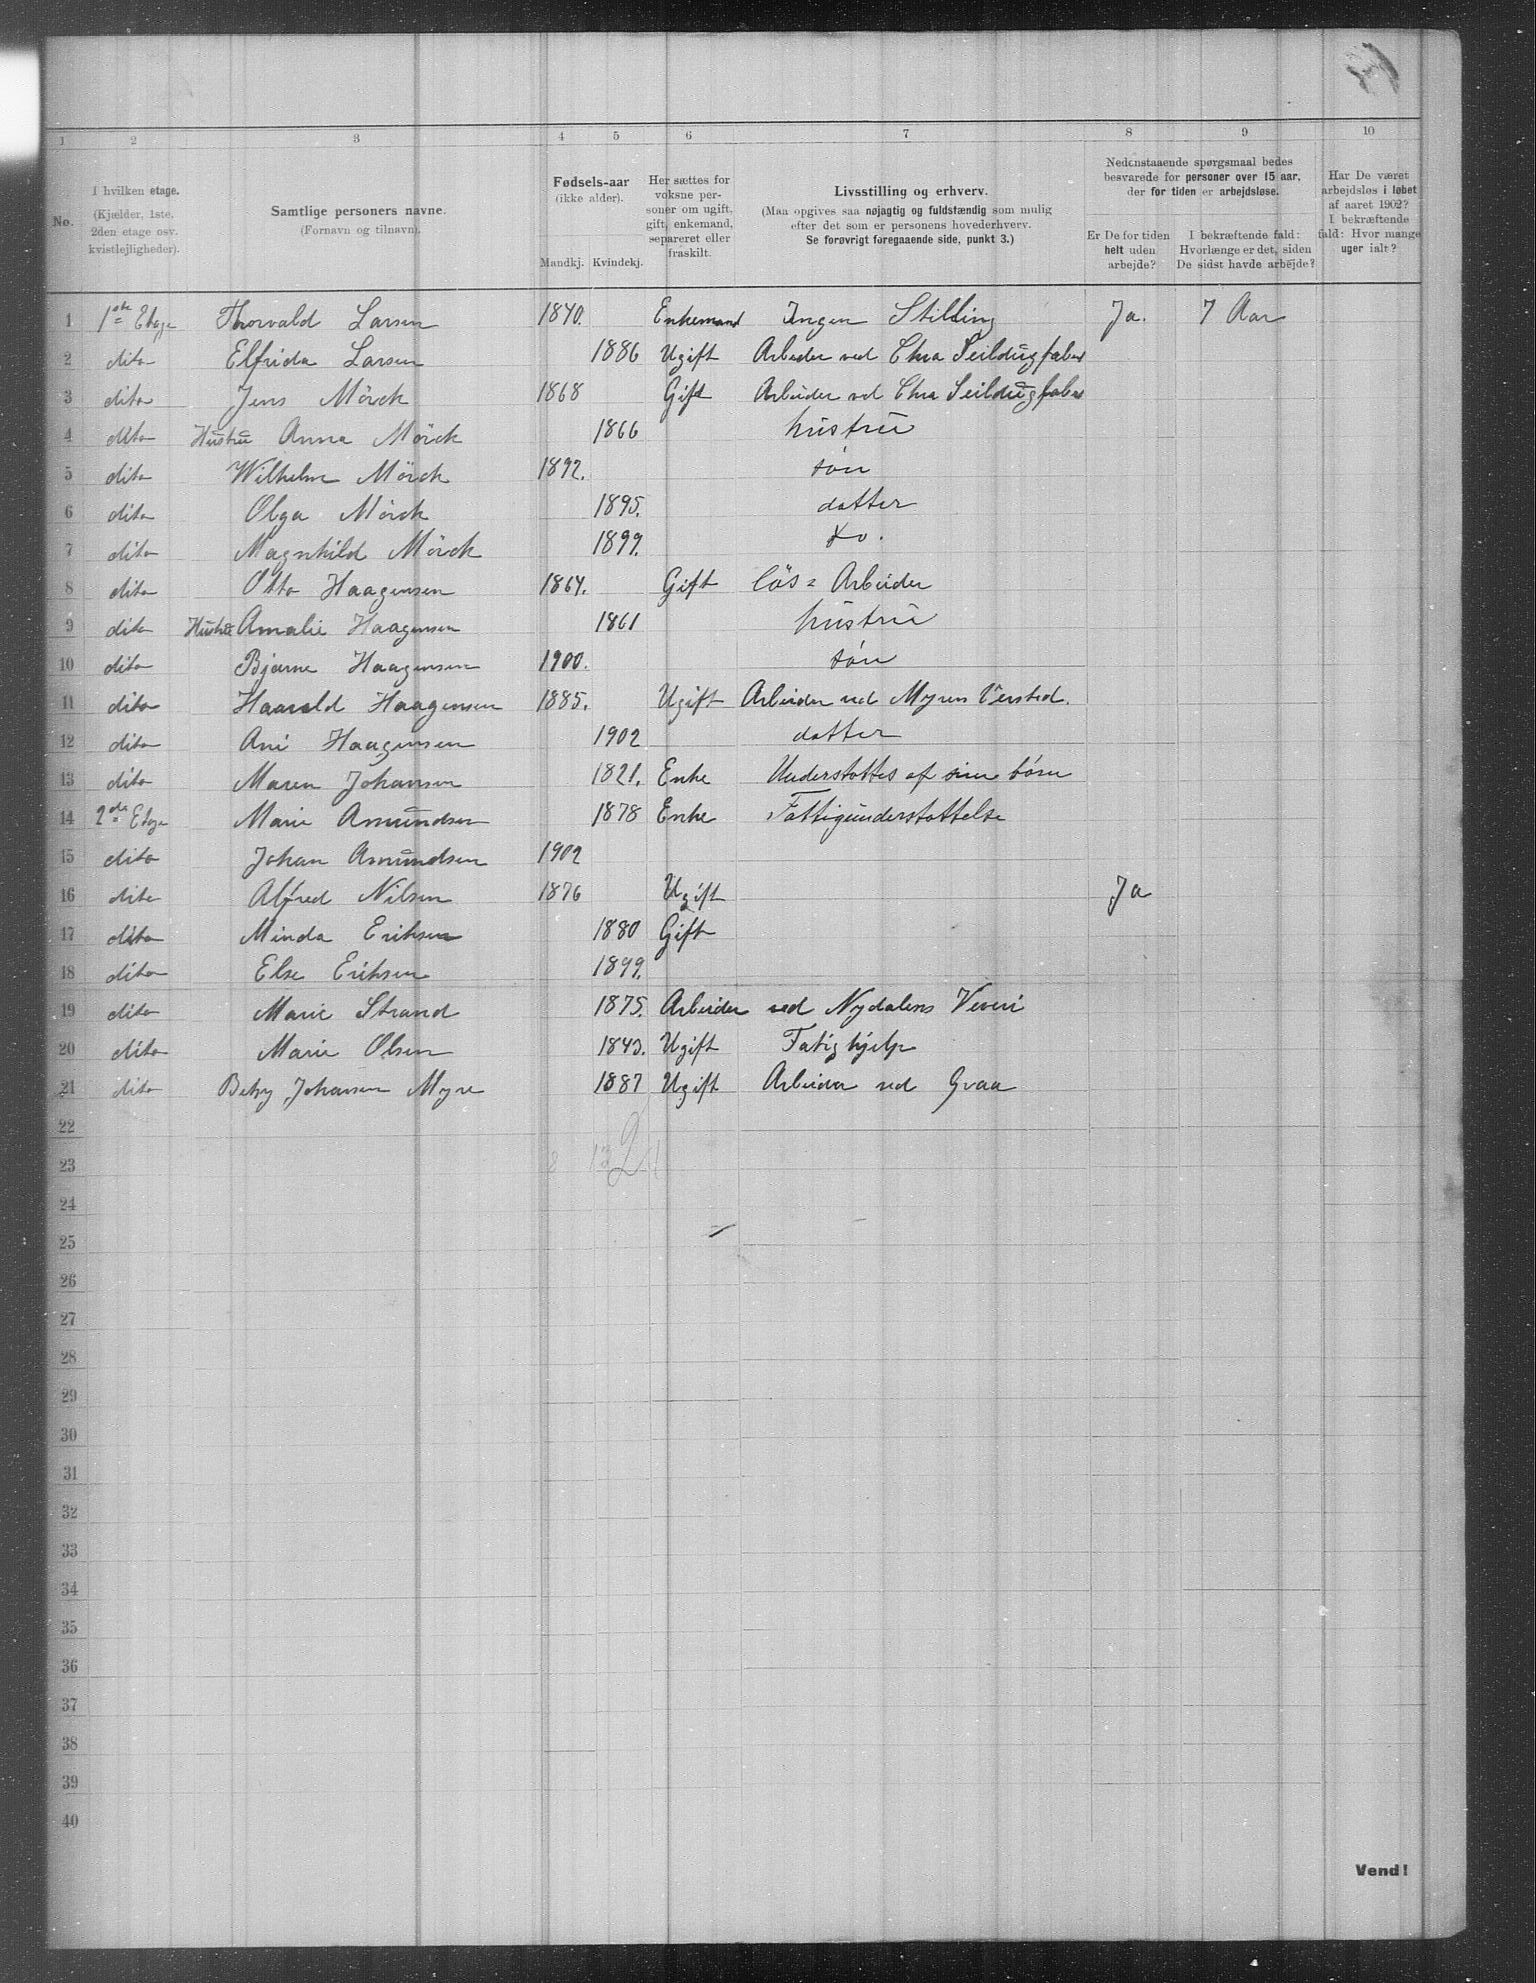 1 2 3 4 5 6 7 8 9 10
No.
I hvilken etage.
(Kjælder, 1ste, 2den etage osv. kvistlejligheder).
Samtlige personers navne.
(Fornavn og tilnavn).
Fødsels-aar
(ikke alder).
Mandkj. Kvindekj.
Her sættes for voksne personer om ugift, gift, enkemand, separeret eller fraskilt.
Livsstilling og erhverv.
(Maa opgives saa nøjagtig og fuldstændig som mulig
efter det som er personens hovederhverv.
Se forøvrigt foregaaende side, punkt 3.)
Nedenstaaende spørgsmaal bedes
besvarede for personer over 15 aar,
der for tiden er arbejdsløse.
Er De for tiden
helt uden
arbejde?
I bekræftende fald:
Hvorlænge er det, siden
De sidst havde arbejde?
Har De været
arbejdsløs i løbet
af aaret 1902?
I bekræftende
fald: Hvor mange
uger ialt?
1 1ste Etage Thorvald Larsen 1840. Enkemand Ingen Stilling Ja. 7 Aar
2 dito Elfrida Larsen 1886 Ugift Arbeider ved Chra Seildugfabr
3 dito Jens Mörck 1868 Gift Arbeider ved Chra Seildugfabr
4 dito Hustru Anna Mörck 1866 hustru
5 dito Wilhelm Mörck 1892. sön
6 dito Olga Mörck 1895. datter
7 dito Magnhild Mörck 1899. do.
8 dito Otto Haagensen 1864. Gift lös = Arbeider
9 dito Hustru Amalie Haagensen 1861 hustru
10 dito Bjarne Haagensen 1900. sön
11 dito Haarald Haagensen 1885. Ugift Arbeider ved Myrens Versted.
12 dito Ani Haagensen 1902 datter
13 dito Maren Johansen 1821. Enke Understottes af sine börn
14 2den Etage Marie Amundsen 1878 Enke Fattigunderstottelse
15 dito Johan Amundsen 1902
16 dito Alfred Nilsen 1876 Ugift Ja
17 dito Minda Eriksen 1880 Gift
18 dito Else Eriksen 1899.
19 dito Marie Strand 1875. Arbeider ved Nydalens Veveri
20 dito Marie Olsen 1843. Ugift Fatighjelp
21 dito Betzy Johansen Myre 1887 Ugift Arbeider ved Graa
22
23 8 13 21
24
25
26
27
28
29
30
31
32
33
34
35
36
37
38
39
40
Vend!